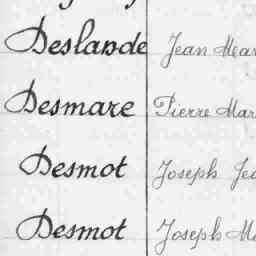 Deslande Jean
Desmare Pierre
Desmot Joseph
Desmot Joseph